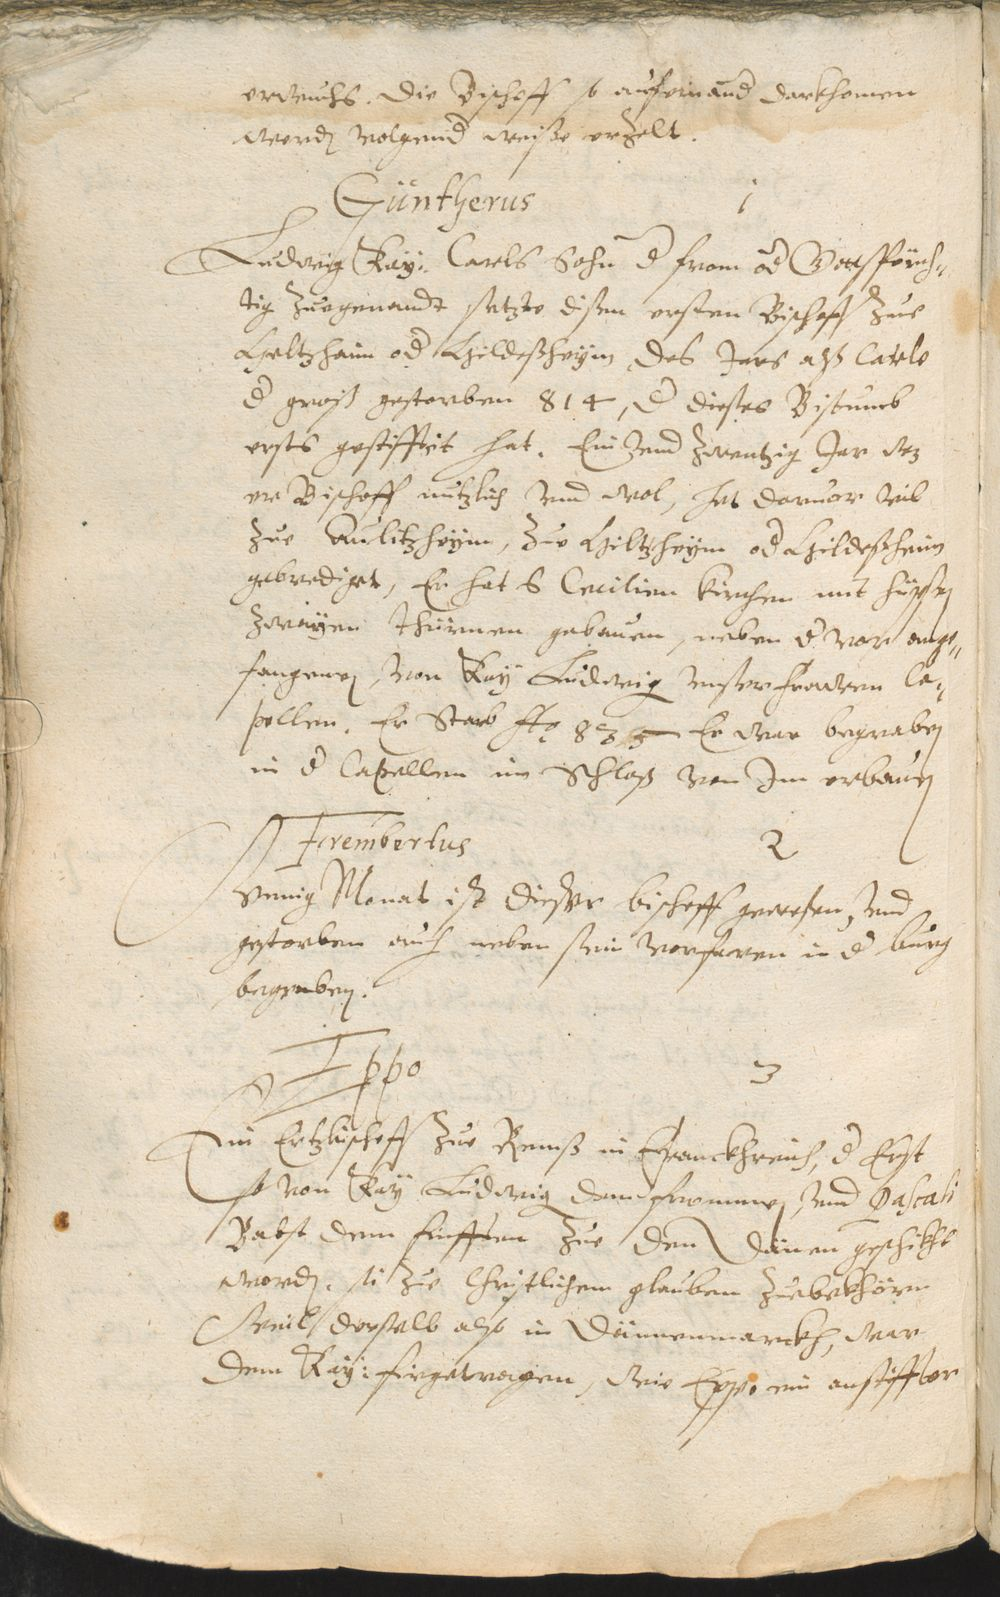 erwuchs. Die Bischoff so aufeinand darkhomen
werdn volgend weiße erzelt.
Güntherus 1
Ludwig Kay: Carls Sohn d from od Gottsförch-
tig zuegenandt setzte disen ersten Bischoff zue
Hiltzhaim od Hildeßheym des Jars alß Carle
d groß gestorben 814, d dieses Bistumb
ersts gestifftet hat. Ein vnd zwentzig Jar waz
er Bischoff nützlich vnd wol, hat daruor vil
zue Aulitzheym, zue Hiltzheym od Hildeßheim
gebrediget, Er hat S Cecilien kirchen mit
zwayen thürnen gebauen, neben d vor ange-
fangenen, von Kay Ludwig vnser frawen Ca-
pellen. Er Starb Ao 835 Er war begraben
in d Capellen im Schloß von Im erbauen
Frembertus 2
Wenig Monat ist dieser bischoff gewesen, vnd
gestorben auch neben sein vorfaren in d burg
begraben.
Eppo 3
Ein Ertzbischoff zue Remß in Franckhreich, d Erst
so von Kay Ludwig dem frommen vnd Pascali
Babst dem fünfften zue den Dänen geschikht
worden. si zue Christlichem glauben zuebekhören
Weil derselb also in Dännenmarckh, war
dem Kay: fürgetragen, wie Eppo ein anstiffter